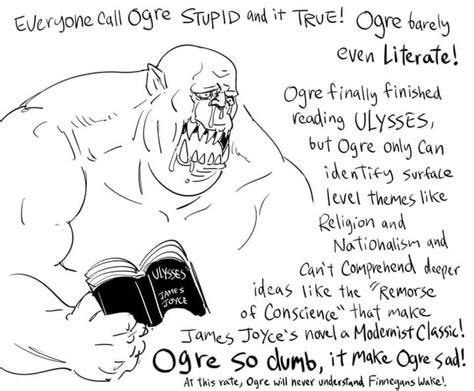 Everyone call Ogre STUPID and it TRUE! Ogre barely
even Literate!
Ogre finally finished
reading ULYSSES,
but Ogre only can
identify surface
level themes like
Religion and
Nationalism and
Can't Comprehend deeper
ideas like the "Remorse
of Conscience" that make
James Joyce's novel a Modernist Classic!
Ogre so dumb, it make Ogre sad!
At this rate, Ogre will never understand Finnegans Wake!
ULYSSES
JAMES
JOYCE